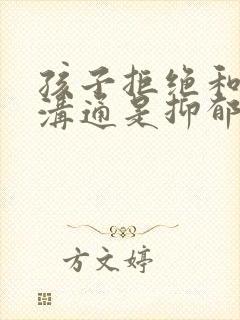 孩子拒绝和
沟通是抑郁
方文婷